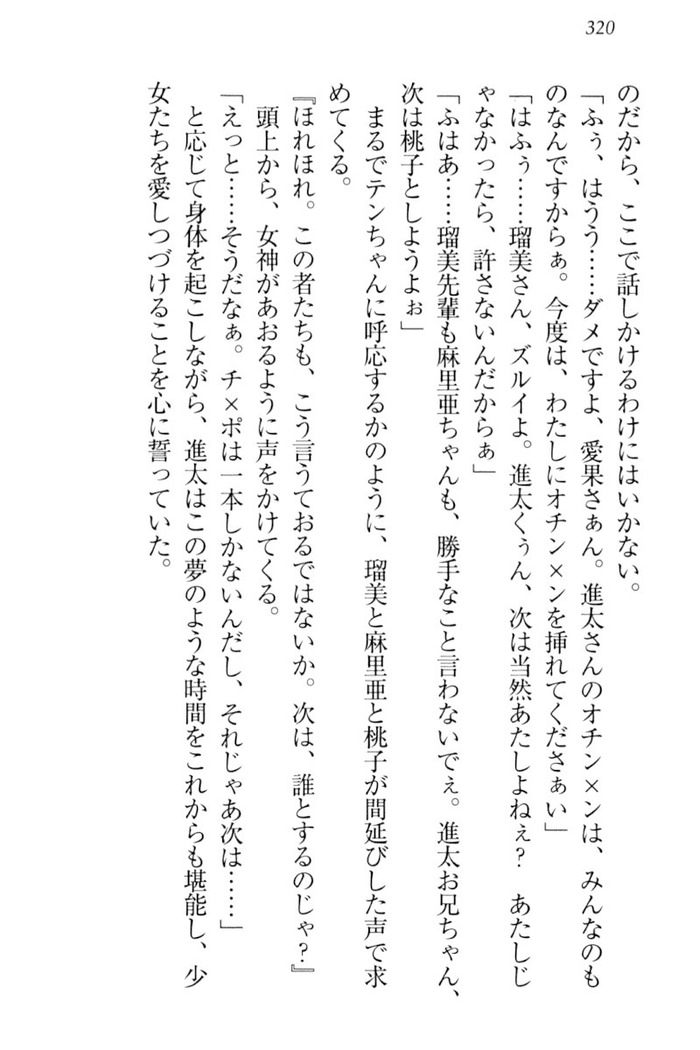 320
のだから、ここで話しかけるわけにはいかない。
「ふぅ、はうう……ダメですよ、愛果さぁん。進太さんのオチン×ンは、みんなのも
のなんですからぁ。今度は、わたしにオチン×ンを挿れてくださぁい」
「はふぅ……瑠美さん、ズルイよ。進太くぅん、次は当然あたしよねぇ？　あたしじ
ゃなかったら、許さないんだからぁ」
「ふはあ……瑠美先輩も麻里亜ちゃんも、勝手なこと言わないでぇ。進太お兄ちゃん、
次は桃子としようよぉ」
まるでテンちゃんに呼応するかのように、瑠美と麻里亜と桃子が間延びした声で求
めてくる。
『ほれほれ。この者たちも、こう言うておるではないか。次は、誰とするのじゃ？』
頭上から、女神があおるように声をかけてくる。
「えっと……そうだなぁ。チ×ポは一本しかないんだし、それじゃあ次は……」
と応じて身体を起こしながら、進太はこの夢のような時間をこれからも堪能し、少
女たちを愛しつづけることを心に誓っていた。